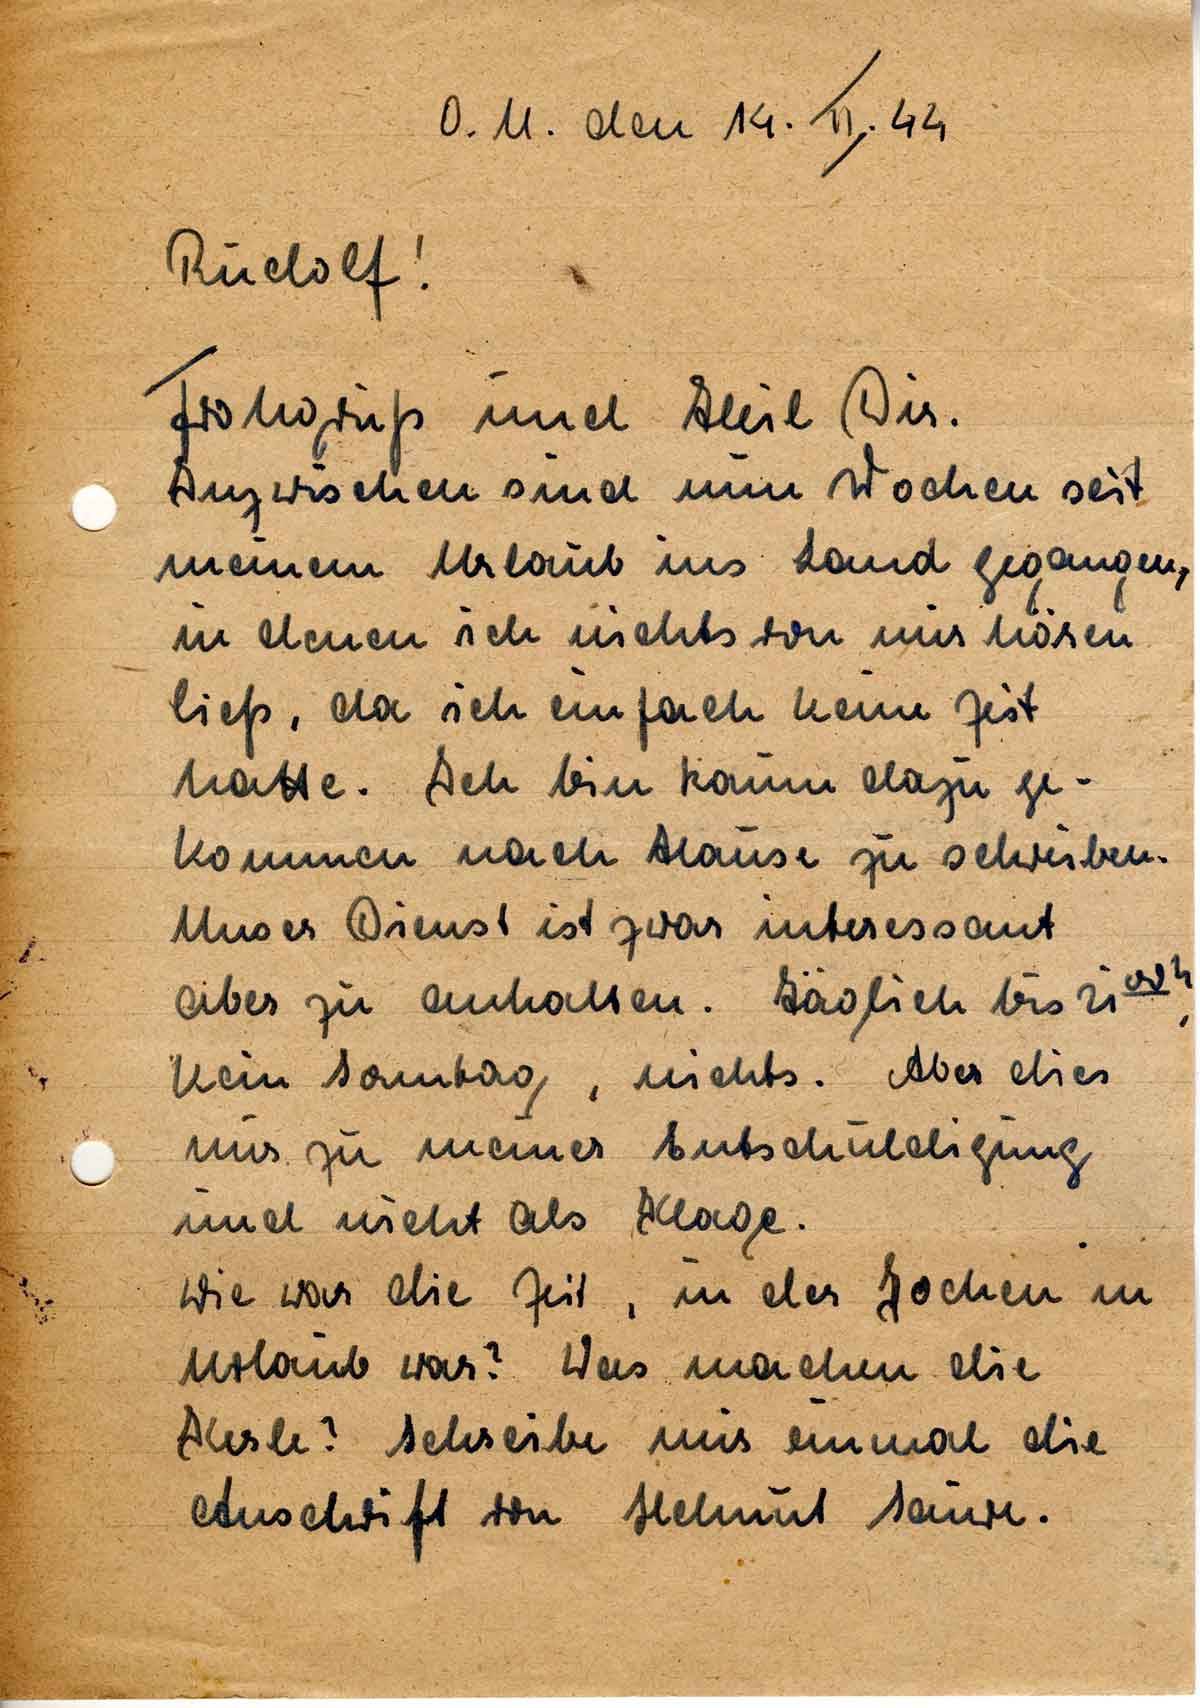 O. U. den 14. II. 44
Rudolf!
Frohgruß und Heil Dir.
Inzwischen sind nun Wochen seit
meinem Urlaub ins Land gegangen,
in denen ich nichts von mir hören
ließ, da ich einfach keine Zeit
hatte. Ich bin kaum dazu ge-
kommen nach Hause zu schreiben.
Unser Dienst ist zwar interessant
aber zu anhalten. Täglich bis 21 00 h,
kein Sonntag, nichts. Aber dies
nur zu meiner Entschuldigung
und nicht als Klage.
Wie war die Zeit, in der Jochen in
Urlaub war? Was machen die
Kerle? Schreibe mir einmal die
Anschrift von Helmut